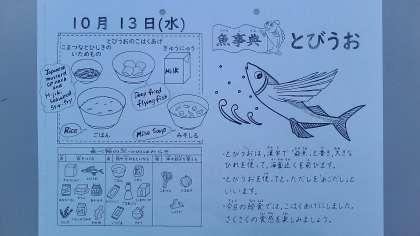 10月 13日(水)
とびうおのこはくあげ
こまつなとひじきの
いためもの
ぎゅうにゅう
Japanese
mustard
spinach
and
Hijiki
seaweed
Stir-fry
MILK
Deep fried
flying fish
Rice
ごはん
Miso Soup
みそしる
魚事典
とびうお
・とびうおは、漢字で「飛魚」と書き、大きな
ひれを使って、海面近くを飛びます。
・とびうおを使ってとっただしを「あごだし」と
いいます。
・今日の給食では、こはくあげにしました。
さくさくの食感を楽しみましょう。